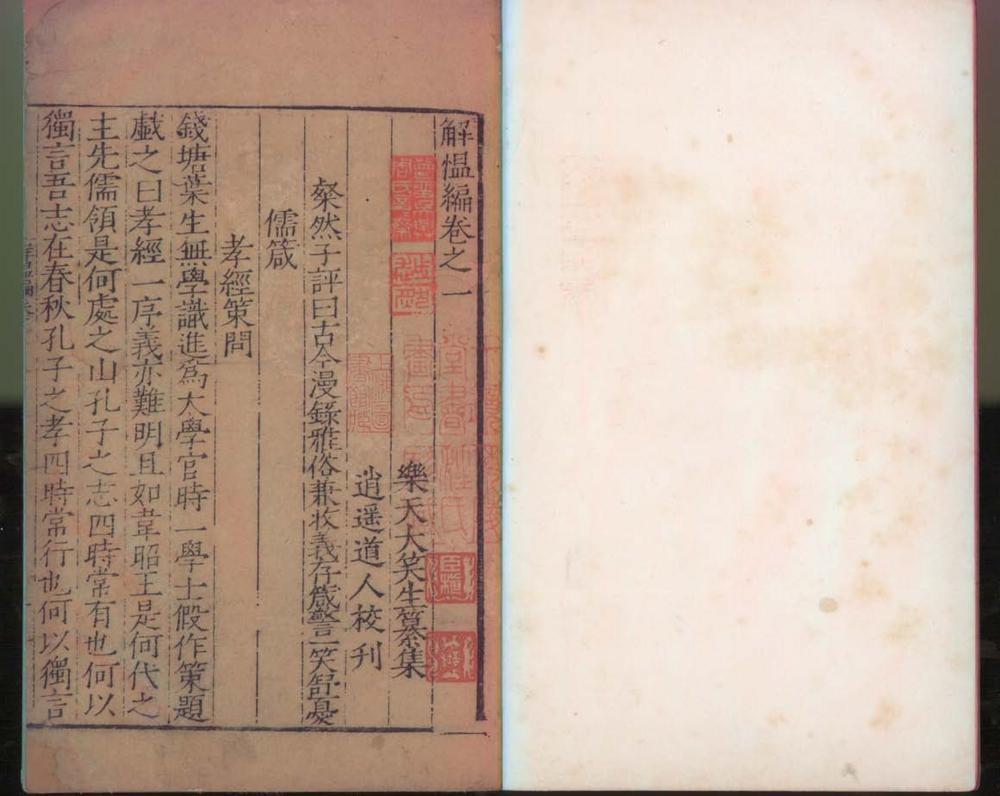 解慍編卷之一
樂天大笑生纂集
逍遥道人校刊
粲然子評曰古今漫錄雅俗兼收義存箴警一笑舒憂
儒箴
孝經策問
錢塘葉生無學識進爲大學官時一學士假作策題
戱之曰孝經一序義亦難明且如韋昭王是何代之
主先儒領是何處之山孔子之志四時常有也何以
獨言吾志在春秋孔子之孝四時常行也何以獨言